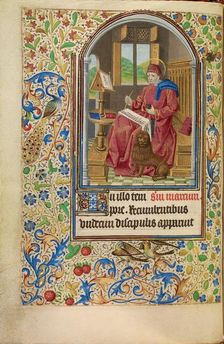 In illo tem Scm marcum
pore. Recumbentibus
undecim discipulis apparuit